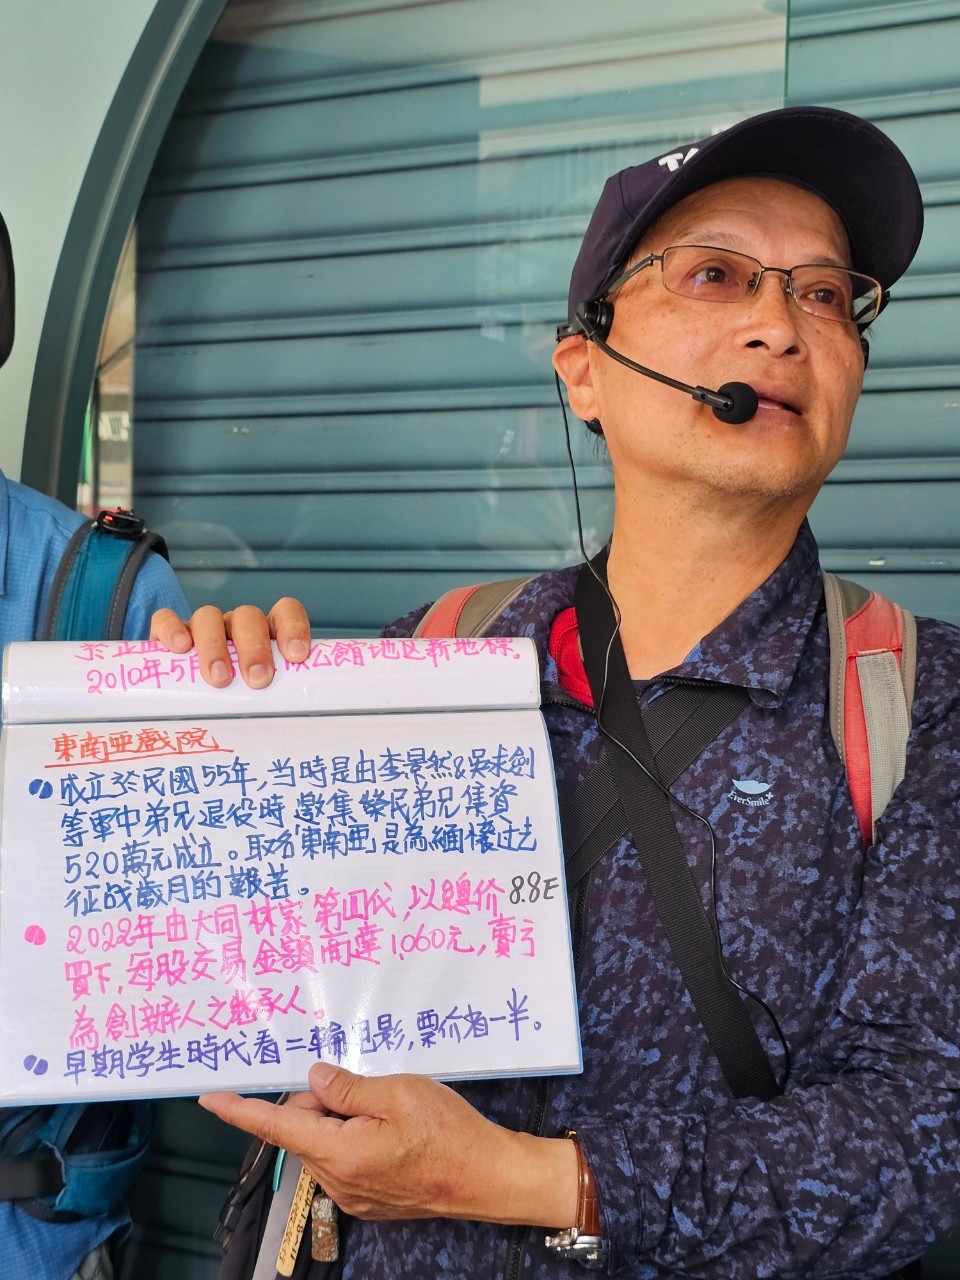 2010年5月 成公館地区新地標。
東南亜戲院
成立於民國55年,当時是由李景然&吳未剑
等軍中弟兄退役時,邀集榮民弟兄集資
520萬元成立。取名「東南亜」是為緬懷过去
征战歲月的艱苦。
2022年由大同林家第四代,以總价8.8E
買下,每股交易金額高達1,060元,賣方
為創辦人之継承人。
早期学生時代看二輪电影,票价省一半。
EverSmile